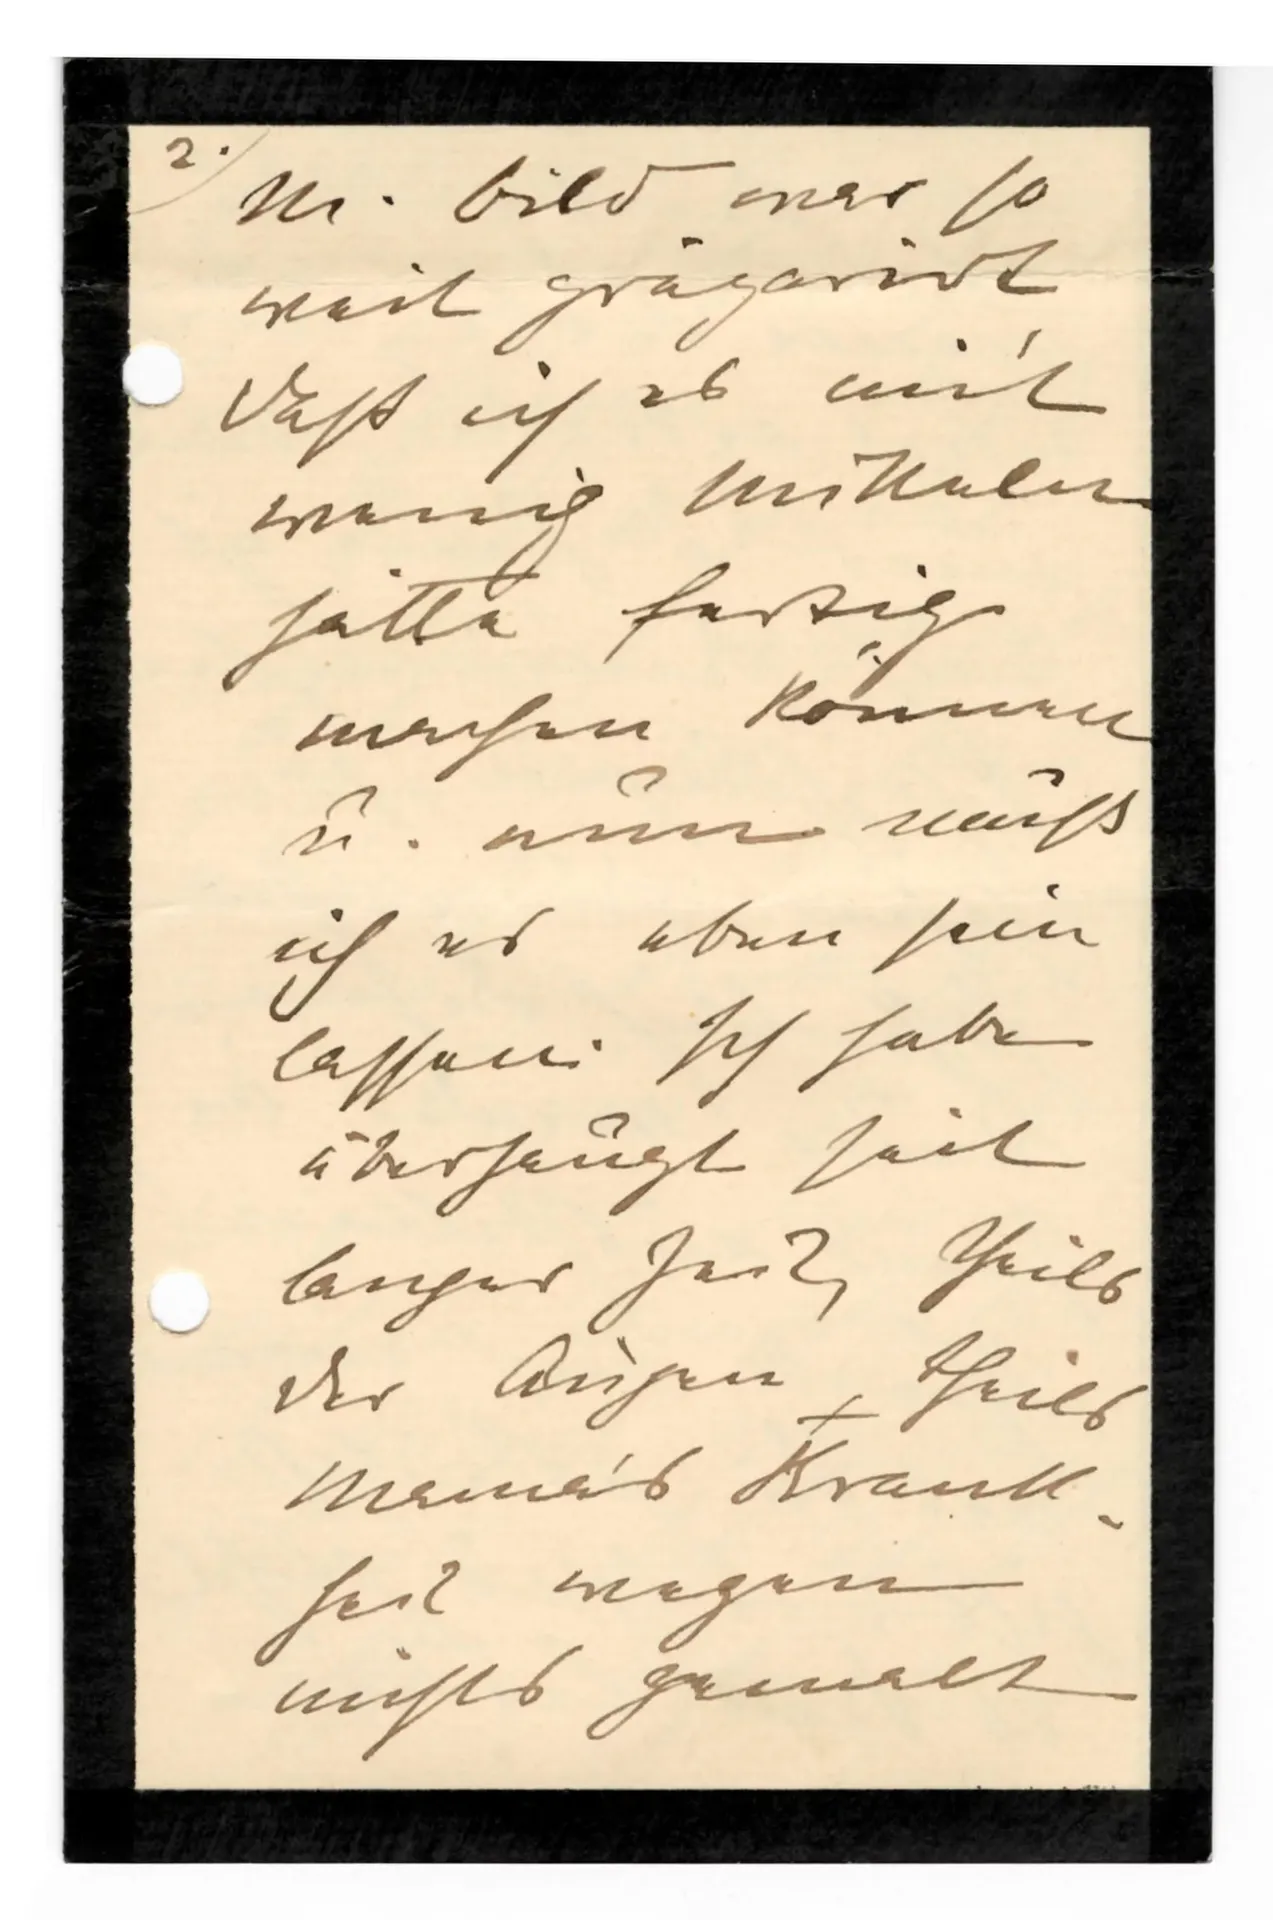 2.)
M. Bild war so
weit präparirt
daß ich es mit
wenig Mitteln
hätte fertig
machen können
u. nun muß
ich es eben sein
lassen. Ich habe
überhaupt seit
langer Zeit, theils
der Augen, theils
Mama's Krank-
heit wegen
nichts gemalt